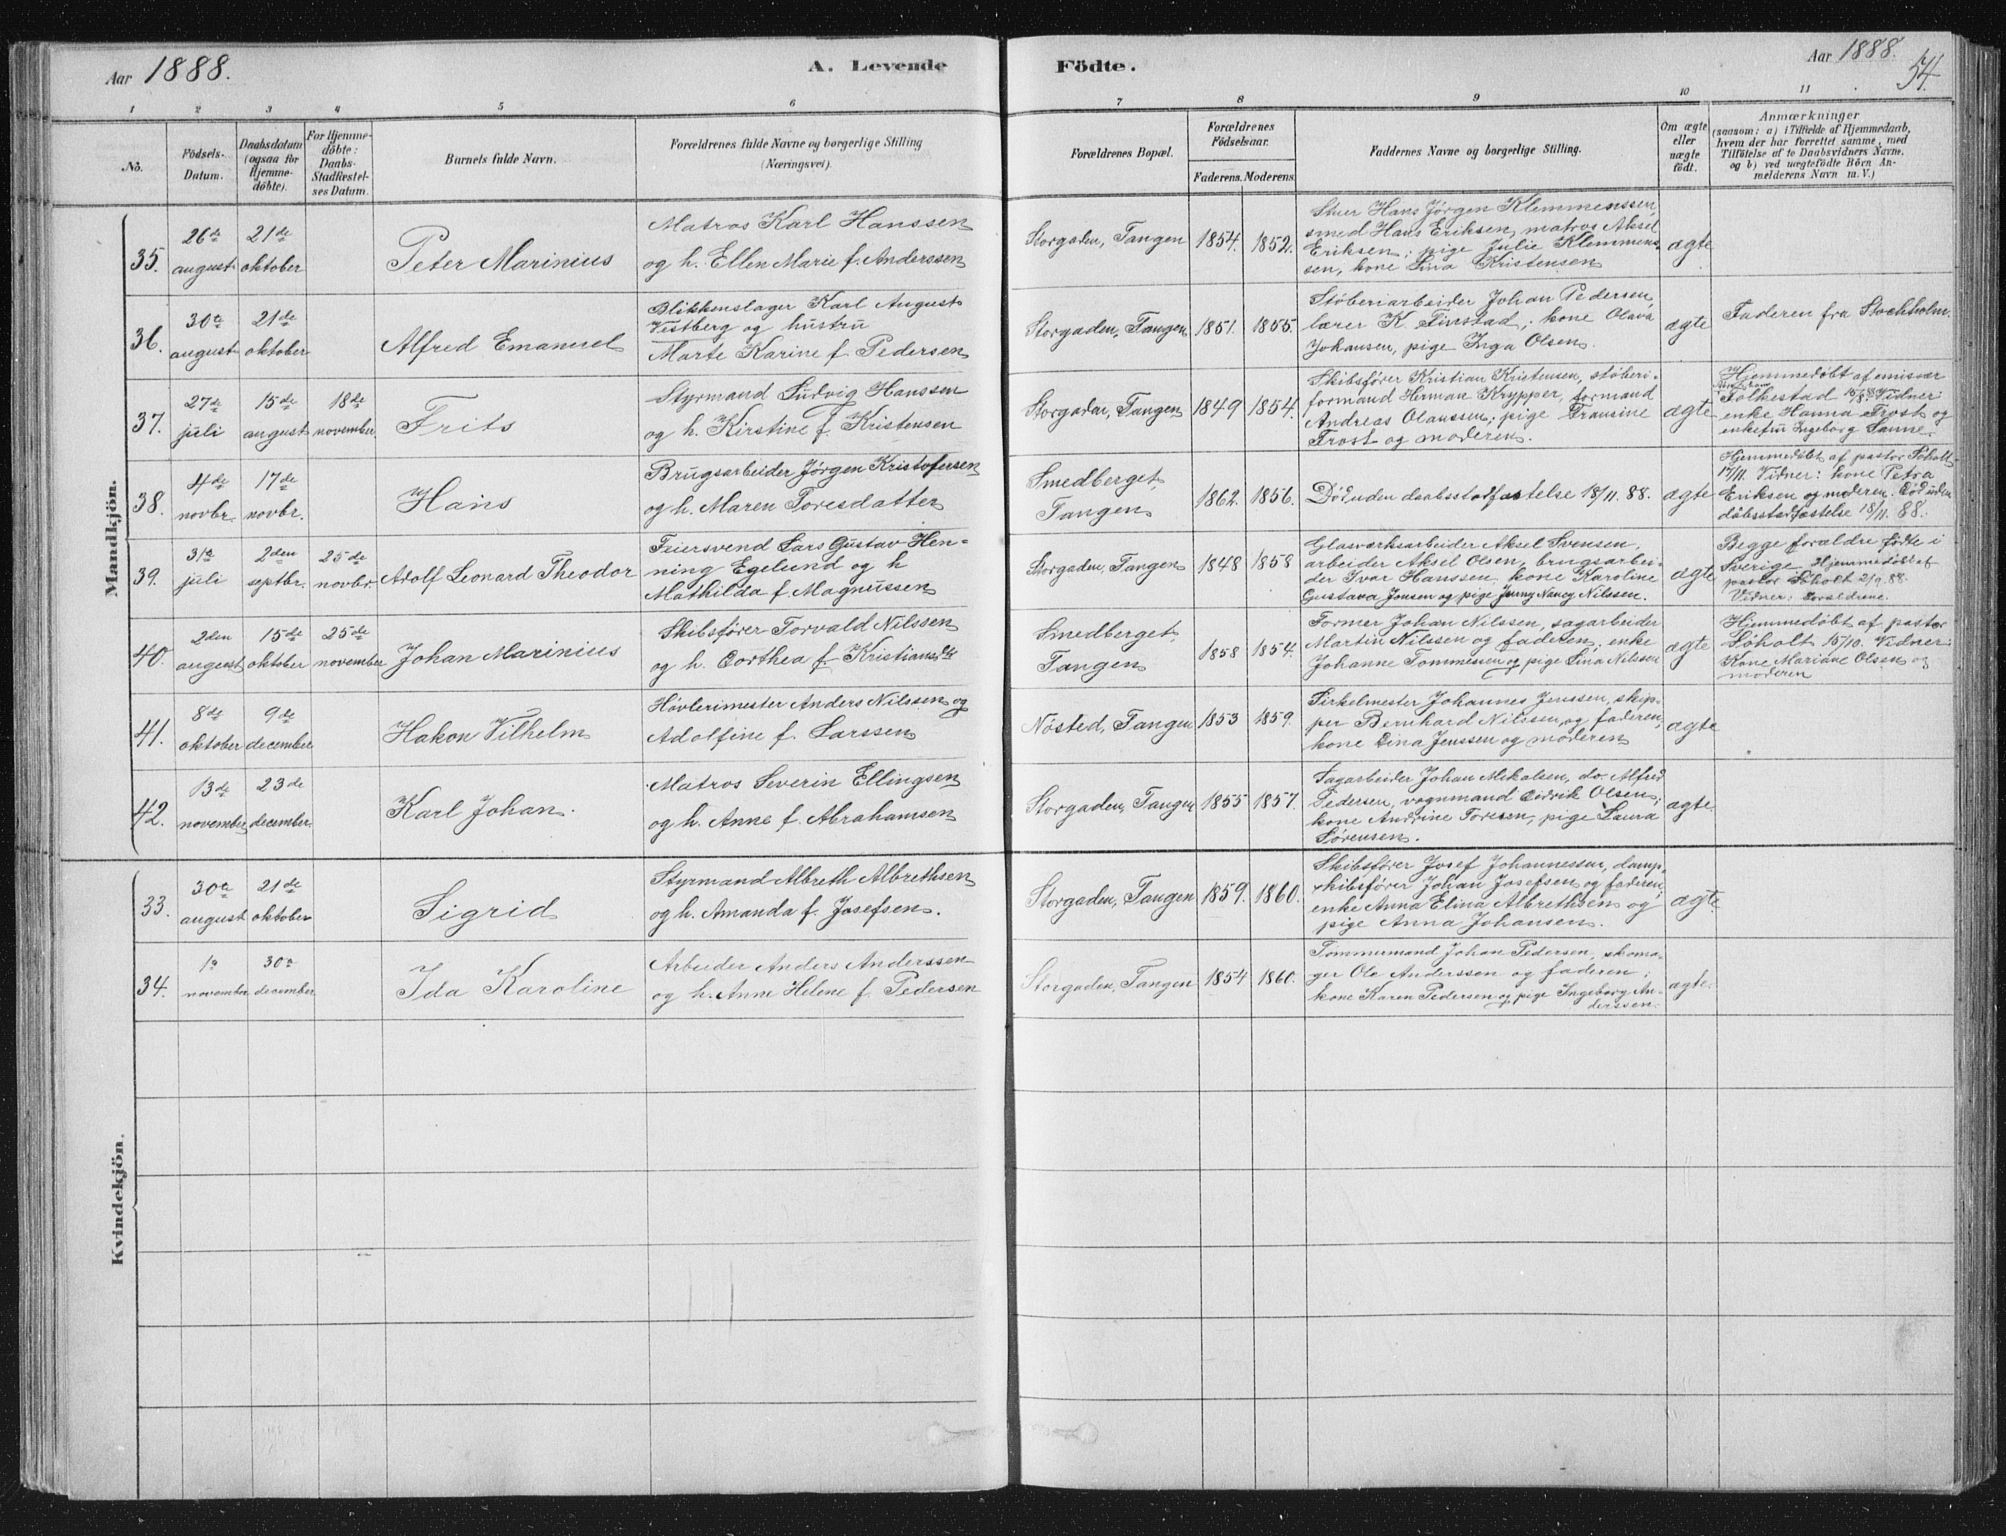 Aar 1888.
A. Levende
Födte.
Aar 1888.
54.
1 2 3 4 5 6 7 8 9 10 11
No.
Födsels-
Datum.
Daabsdatum
(ogsaa for
Hjemme-
döbte).
For Hjemme-
döbte:
Daabs-
Stadfæstel-
ses Datum.
Barnets fulde Navn.
Forældrenes fulde Navne og borgerlige Stilling
(Næringsvei).
Forældrenes Bopæl.
Forældrenes
Födselsaar.
Faderens. Moderens.
Faddernes Navne og borgerlige Stilling.
Om ægte
eller
uægte
födt.
Anmærkninger
(saasom: a) i Tilfælde af Hjemmedaab,
hvem der har forrettet samme, med
Tilföielse af to Daabsvidners Navne.
og b) ved uægtefödte Börn An-
melderens Navn m. V.)
Mandkjön.
35.
26de
august
21de
oktober
Peter Marinius
Matros Karl Hanssen
og h. Ellen Marie f. Anderssen
Storgaden, Tangen
1854. 1852.
Stuer Hans Jørgen Klemmenssen,
smed Hans Eriksen, matros Aksel
Eriksen; pige Julie Klemmens
sen, kone Lina Kristensen
ægte
36.
30te
august
21de
oktober
Alfred Emanuel
Blikkenslager Karl August
Vestberg og hustru
Marte Karine f. Pedersen
Storgaden, Tangen
1851. 1855.
Støberiarbeider Johan Pedersen,
lærer K. Finstad; kone Olava
Johansen, pige Inga Olsen.
ægte
Faderen fra Stockholm.
37.
27de
juli
15de
august
18de
november.
Frits
Styrmand Ludvig Hanssen
og h. Kirstine f. Kristensen
Storgaden, Tangen
1849 1854.
Skibsfører Kristian Kristensen, støberi-
formand Herman Krypper, formand
Andreas Olaussen; pige Fransine
Trost og moderen.
ægte
Hjemmedøbt af emisær
Folkestad 15/8 88. Vidner:
enke Hanna Trost og
enkefru Ingeborg Sanne.
38.
4de
novbr.
17de
novbr.
Hans
Brugsarbeider Jørgen Kristofersen
og h. Maren Toresdatter
Smedberget,
Tangen
1862. 1856.
Død uden daabsstadfæstelse 18/11. 88.
ægte
Hjemmedøbt af pastor Søholt
17/11. Vidner: kone Petra
Eriksen og moderen. Død uden
dåbsstadfæstelse 18/11. 88.
39.
31te
juli
2den
septbr.
25de
novbr.
Adolf Leonard Theodor
Feiersvend Lars Gustav Hen-
ning Egelund og h
Mathilda f. Magnussen
Storgaden, Tangen
1848 1858
Glasværksarbeider Aksel Svensen,
arbeider Aksel Olsen, brugsarbei-
der Ivar Hanssen, kone Karoline
Gustava Jonsen og pige Jenny Nancy Nilssen.
ægte
Begge forældre fødte i
Sverige. Hjemmedøbt af
pastor Søholt 2/9. 88.
Vidner: Forældrene.
40.
2den
august
15de
oktober
25de
november
Johan Marinius
Skibsfører Torvald Nilssen
og h. Dorthea f. Kristiansdtr
Smedberget,
Tangen
1858 1854.
Former Johan Nilssen, sagarbeider
Martin Nilssen og faderen; enke
Johanne Tommessen og pige Lina Nilssen
ægte
Hjemmedøbt af pastor
Søholt 15/10. Vidner:
Kone Mariane Olsen og
moderen
41.
8de
oktober
9de
december
Hakon Vilhelm
Høvlerimester Anders Nilssen og
Adolfine f. Larssen
Nøsted, Tangen
1853 1859.
Sirkelmester Johannes Jenssen, skip-
per Bernhard Nilssen og faderen;
kone Dina Jenssen og moderen
ægte
42.
13de
november
23de
december.
Karl Johan.
Matros Severin Ellingsen
og h. Anne f. Abrahamsen
Storgaden, Tangen
1855 1857.
Sagarbeider Johan Mikalsen, do. Alfred
Pedersen, vognmand Didrik Olsen;
kone Andrine Toresen, pige Laura
Sørensen.
ægte.
Kvindekjön.
33.
30te
august
21de
oktober
Sigrid
Styrmand Albreth Albrethsen
og h. Amanda f. Josefsen.
Storgaden, Tangen
1859. 1860.
Skibsfører Josef Johannessen, damp-
skibsfører Johan Josefsen og faderen;
enke Anna Elina Albrethsen og
pige Anna Johansen.
ægte.
34.
1te
november
30te
december
Ida Karoline
Arbeider Anders Anderssen
og h. Anne Helene f. Pedersen
Storgaden, Tangen
1854 1860.
Tommermand Johan Pedersen, skoma-
ger Ole Anderssen og faderen;
kone Karen Pedersen og pige Ingeborg An-
derssen.
ægte.